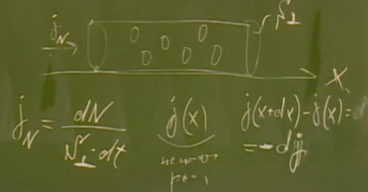 j_N S_⊥
x
j_N = dN / (S_⊥ · dt) j(x) j(x+dx) - j(x) =
= -dj